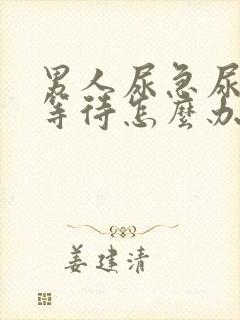 男人尿急尿
等待怎麼办
姜建清